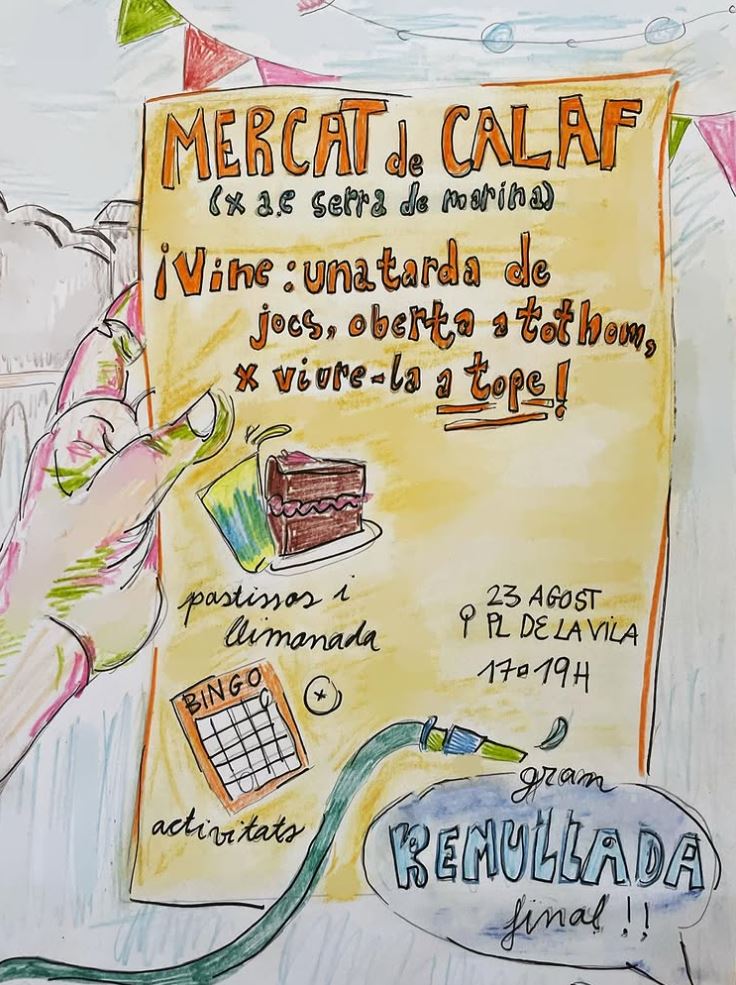 MERCAT de CALAF
(x a.c serra de marina)
¡Vine: una tarda de
jocs, oberta a tothom,
x viure-la a tope!
pastissos i
llimonada
23 AGOST
PL DE LA VILA
17 a 19H
BINGO
activitats
gram
REMULLADA
final!!